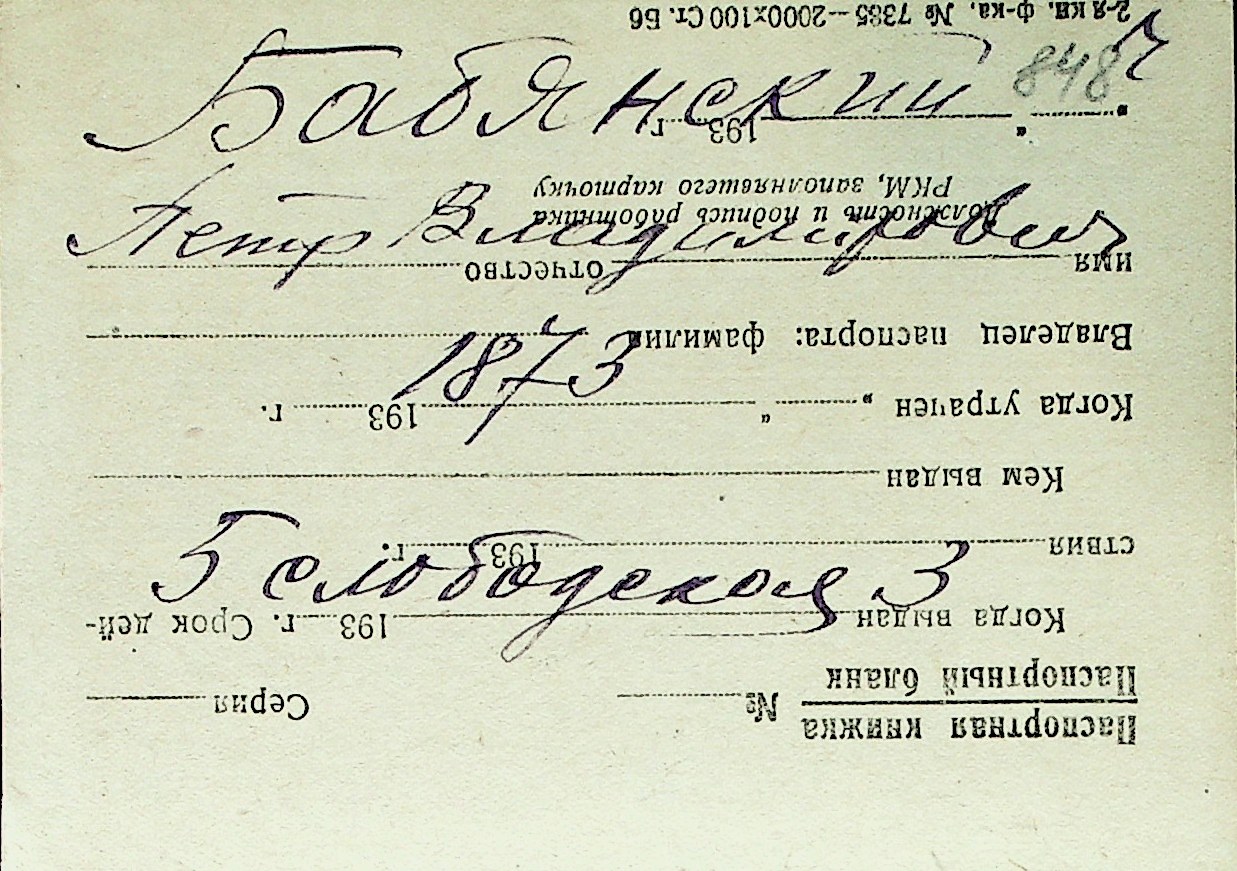 Бабянский 848 ч
Петр Владимирович
1873
5 слободская 3
Паспортная книжка
Паспортный бланк № Серия
Когда выдан 193 г. Срок дей-
ствия 193 г.
Кем выдан
Когда утрачен „ “ 193 г.
Владелец паспорта: фамилия
имя отчество
Должность и подпись работника
РКМ, заполнявшего карточку
„ “ 193 г.
2-я кн. ф-ка. № 7385—2000х100 Ст. Б6